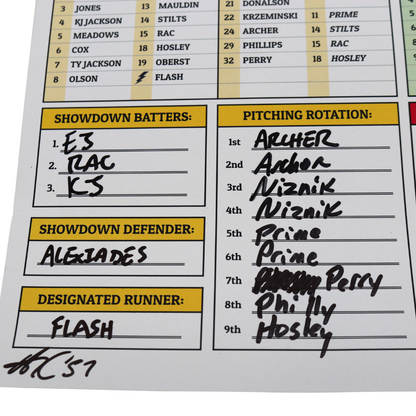 3 JONES 13 MAULDIN 21 DONALSON
4 KJ JACKSON 14 STILTS 22 KRZEMINSKI 11 PRIME
5 MEADOWS 15 RAC 24 ARCHER 14 STILTS
6 COX 18 HOSLEY 29 PHILLIPS 15 RAC
7 TY JACKSON 19 OBERST 32 PERRY 18 HOSLEY
8 OLSON FLASH
SHOWDOWN BATTERS:
1. EJ
2. RAC
3. KJ
SHOWDOWN DEFENDER:
ALEXIADES
DESIGNATED RUNNER:
FLASH
PITCHING ROTATION:
1st ARCHER
2nd Archer
3rd Niznik
4th Niznik
5th Prime
6th Prime
7th Perry
8th Philly
9th Hosley